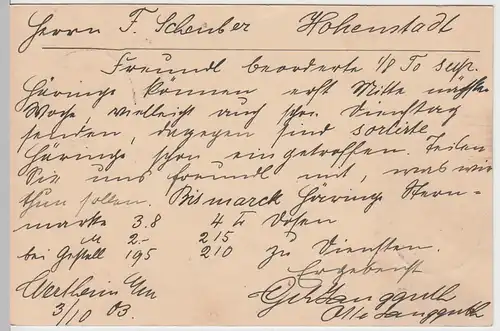 Herrn F. Scheuber Hohenstadt
Freundl beorderte 1/8 To sup.
Häringe können erst Mitte nächste
Woche, vielleicht auch schon Dienstag
senden, dagegen sind sortirte
Häringe schon eingetroffen. Teilen
Sie uns freundl mit, was wir
thun sollen. Bismarck Häringe Stern-
marke 3.8 4 Dosen
" 2.- 215
bei Gestell 195 210 zu Diensten.
Ergebenst
Wertheim a/m Gebr Langguth
3/10 03. Otto Langguth